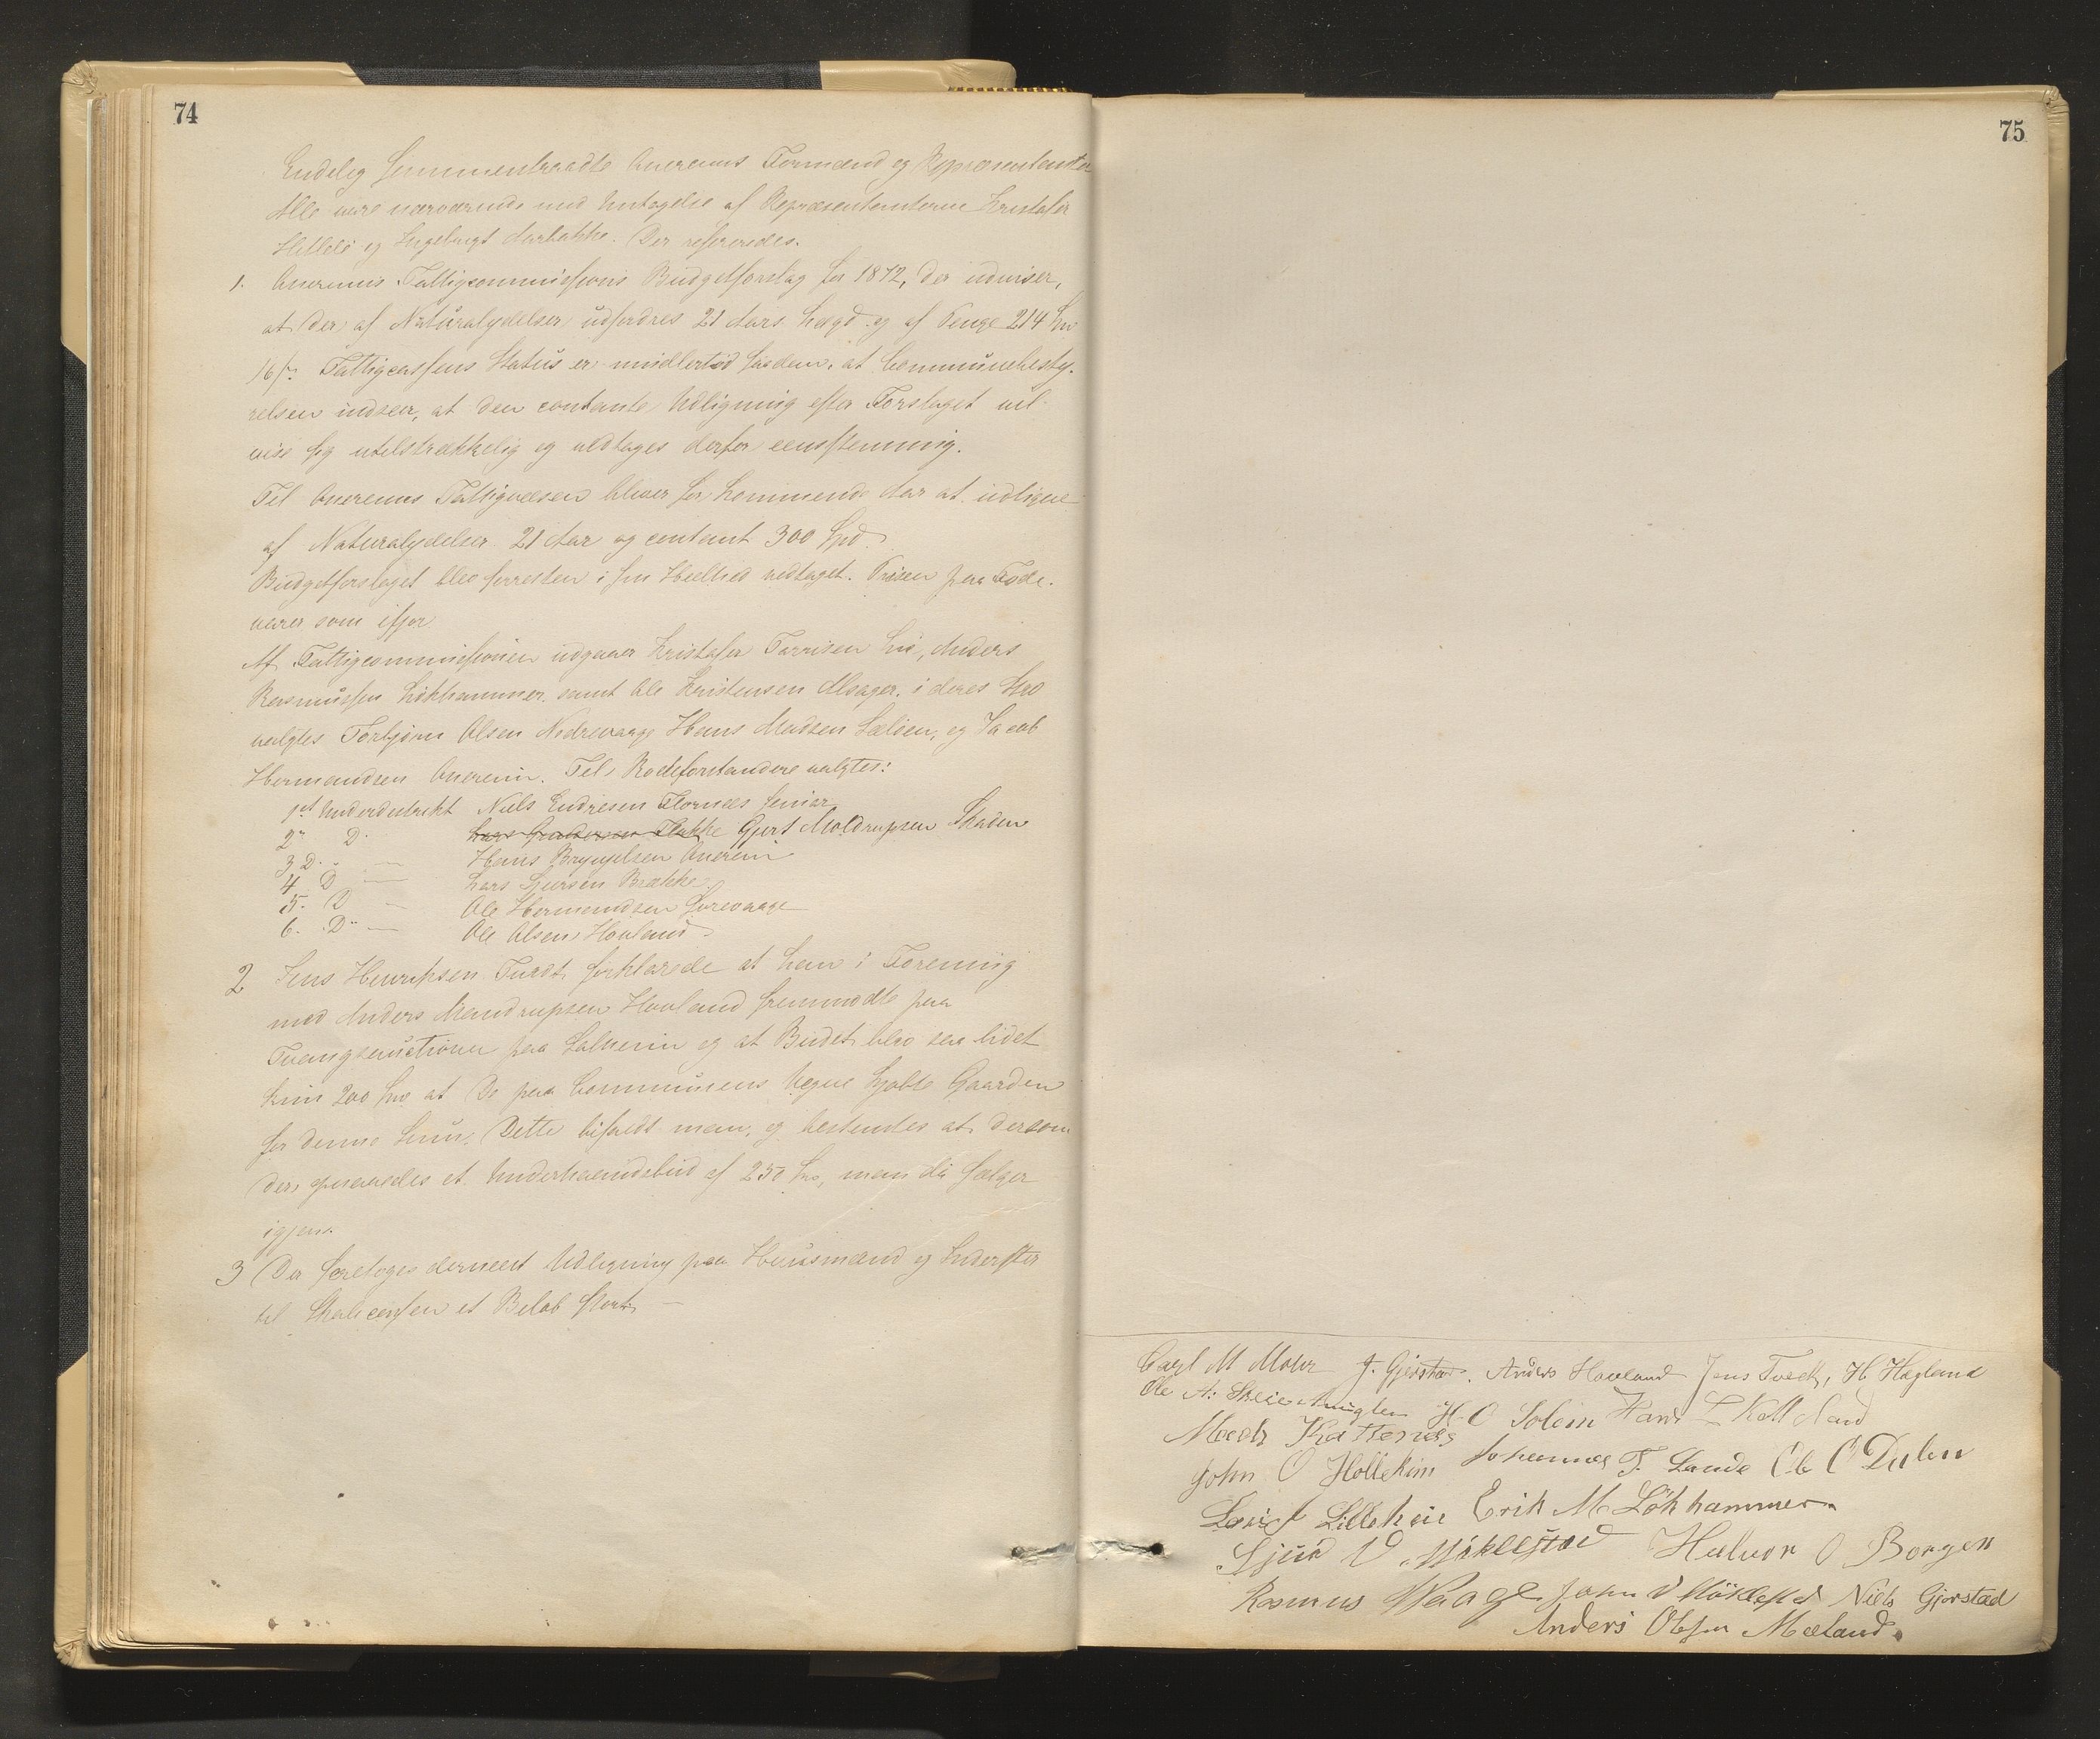 74
Endelig sammentraadte Anerems Formænd og Repræsentanter
Alle vare nærværende med Undtagelse af Repræsentanterne Kristofer
og Ingebrigt Aarbakke. Der refereredes.
1. Anerems Fattigcommissions Budgetforslag for 1872, der udviser,
at der af Naturalydelser udfordres 21 Aars Lægd og af Penge 214 Spd
16 s. Fattigcassens Status er imidlertid saadan, at Communebesty-
relsen indseer, at den contante Udligning efter Forslaget vil
vise sig utilstrækkelig og vedtages derfor eensstemmig.
Til Anerems Fattigvæsen bliver for kommende Aar at udligne
af Naturalydelser 21 Aar og contant 300 Spd.
Budgetforslaget blev forresten i sin Heelhed vedtaget. Prisen paa Føde-
varer som ifjor
Af Fattigcommissionen udgaaer Kristofer Tarrisen Lie, Anders
Rasmussen Løkhammer samt Ole Kristensen Alsager, i deres Sted
valgtes Torbjørn Olsen Nedrevaage Hans Madsen Lælien, og Jacob
Hermandsen Anerem. Til Rodeforstandere valgtes:
1st Underdistrikt Niels Endresen Flornæs senior
2n D. Gjert Moldrupsen Skaden
3 D. — Hans Brynjelsen Anerem
4 D — Lars Sjursen Brekke
5. D — Ole Hermundsen Sørevaage
6. D — Ole Olsen Hovland
2 Jens Henriksen Tvedt forklarede at han i Forening
med Anders Mandrupsen Hovland fremmødte paa
Tvangsauctionen paa og at Budet blev saa lidet
kun 200 Spd at De paa Communens Vegne kjøbte Gaarden
for denne Sum; Dette bifaldt man, og bestemtes at dersom
der opnaaedes et Underhaandsbud af 250 Spd, man da sælger
igjen.
3 Der foretoges dernæst Udligning paa Huusmænd og Inderster
til Skolecassen et Beløb stort —
75
Carl M Mohr J. Gjerstad. Anders Haveland Jens Tvedt, H Hægland
Ole A: Skeie H O Solem Hans L Kalland
Mads Kattenes
John O Hollekim Johannes T. Lande Ole O Dalen
Lilleskeie Erik M Løkhammer
Sjur V Mykelstad Halvor O Borgen
Rasmus Waage John Niels Gjerstad
Anders Olsen Mæland.